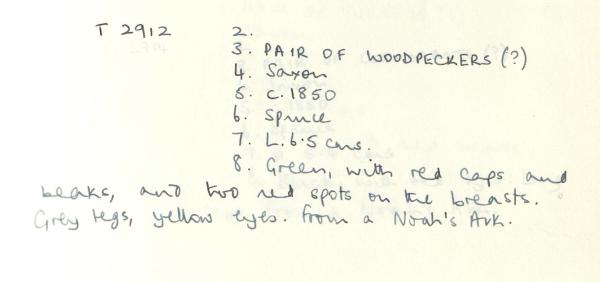 T 2912 2.
3. PAIR OF WOODPECKERS (?)
4. Saxon
5. C.1850
6. Spruce
7. L. 6.5 cms.
8. Green, with red caps and
beaks, and two red spots on the breasts.
Grey legs, yellow eyes. From a Noah's Ark.